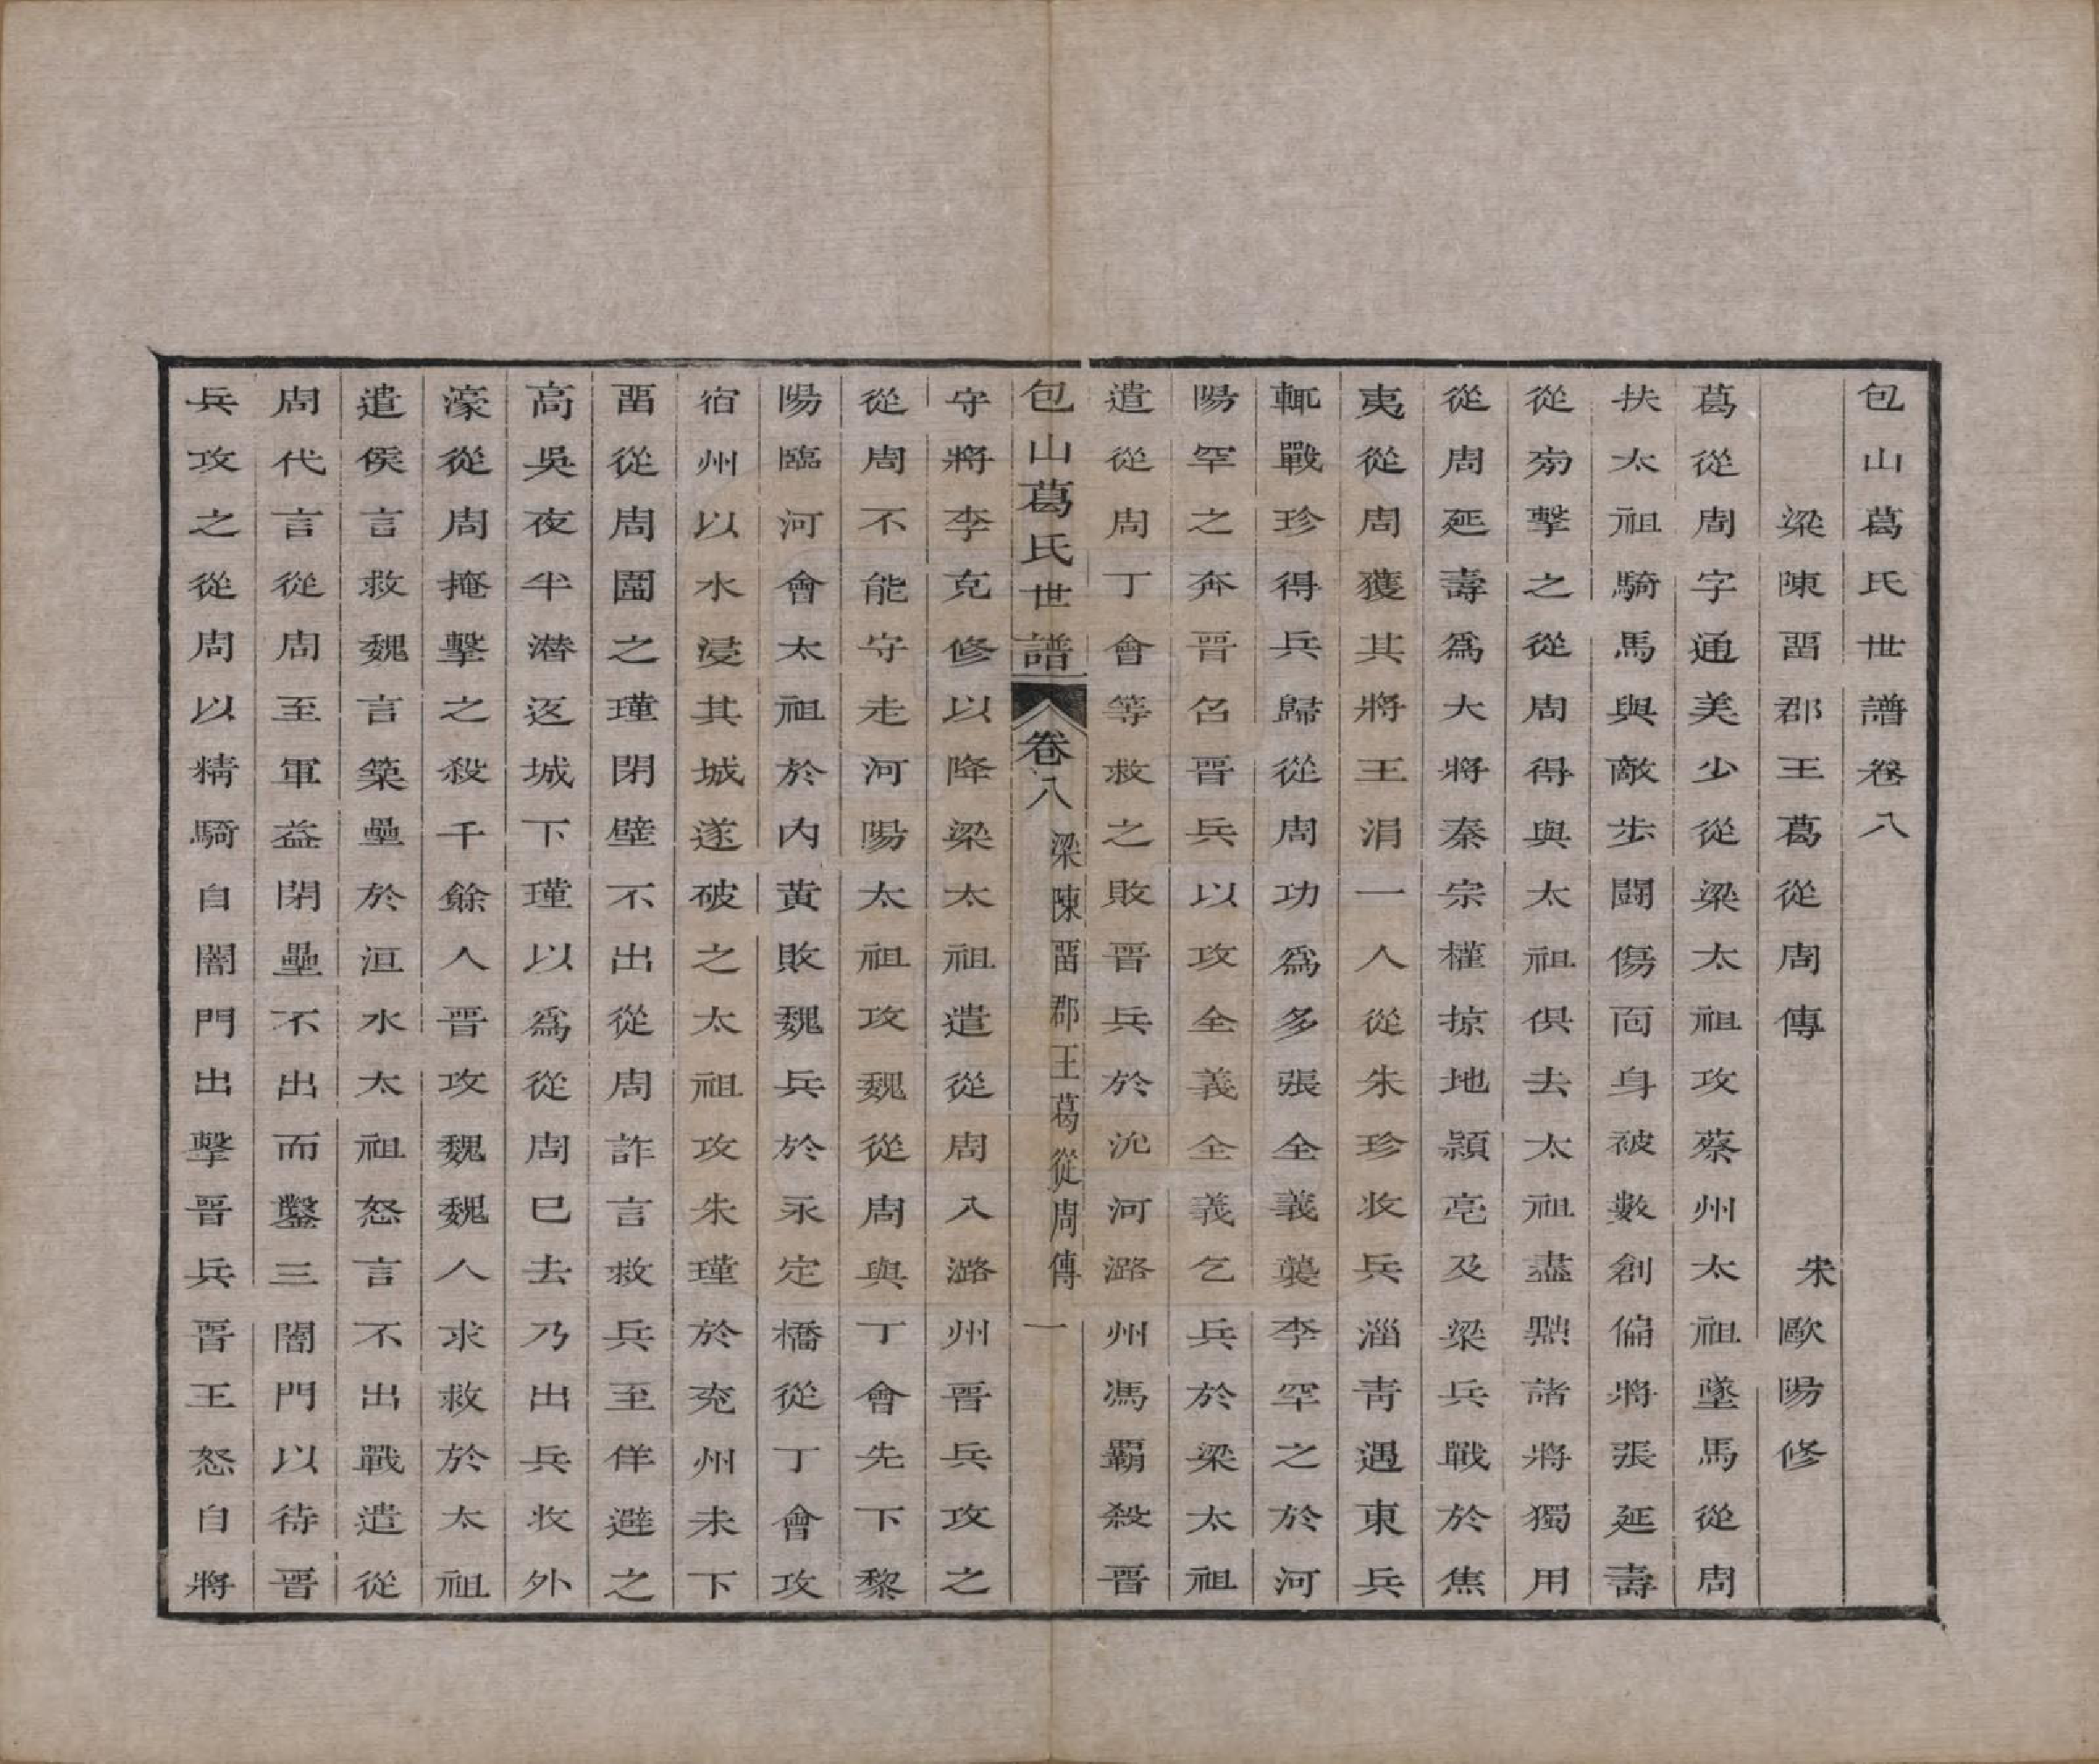 包山葛氏世譜卷八
梁陳畱郡王葛從周傳　宋歐陽修
葛從周字通美少從梁太祖攻蔡州太祖墜馬從周
扶太祖騎馬與敵步鬭傷面身被數創偏將張延壽
從旁擊之從周得與太祖俱去太祖盡黜諸將獨用
從周延壽爲大將秦宗權掠地潁亳及梁兵戰於焦
夷從周獲其將王涓一人從朱珍收兵淄青遇東兵
輒戰珍得兵歸從周功爲多張全義襲李罕之於河
陽罕之奔晉召晉兵以攻全義全義乞兵於梁太祖
遣從周丁會等救之敗晉兵於沇河潞州馮霸殺晉
包山葛氏世譜 卷八 梁陳畱郡王葛從周傳 一
守將李克修以降梁太祖遣從周入潞州晉兵攻之
從周不能守走河陽太祖攻魏從周與丁會先下黎
陽臨河會太祖於內黃敗魏兵於永定橋從丁會攻
宿州以水浸其城遂破之太祖攻朱瑾於兖州未下
畱從周圍之瑾閉壁不出從周詐言救兵至佯避之
高吳夜半潛返城下瑾以爲從周已去乃出兵收外
濠從周掩擊之殺千餘人晉攻魏魏人求救於太祖
遣侯言救魏言築壘於洹水太祖怒言不出戰遣從
周代言從周至軍益閉壘不出而鑿三闇門以待晉
兵攻之從周以精騎自闇門出擊晉兵晉王怒自將